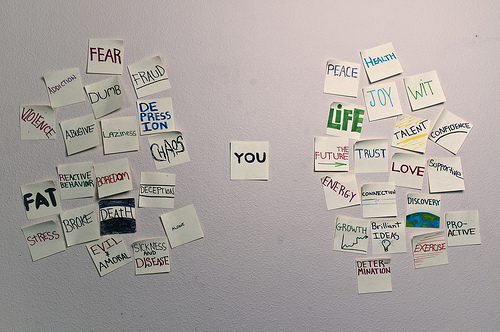 FEAR
ADDICTION
DUMB
FRAUD
VIOLENCE
ABUSIVE
LAZINESS
DE
PRESS
ION
CHAOS
FAT
REACTIVE
BEHAVIOR
BOREDOM
DECEPTION
STRESS
BROKE
DEATH
EVIL
&
AMORAL
SICKNESS
AND
DISEASE
ALONE
YOU
PEACE
HEALTH
JOY
WIT
LiFE
TALENT
CONFIDENCE
THE
FUTURE
TRUST
LOVE
SUPPORTING
ENERGY
CONNECTION
DISCOVERY
GROWTH
Brilliant
IDEAS
EXERCISE
PRO-
ACTIVE
DETER-
MINATION